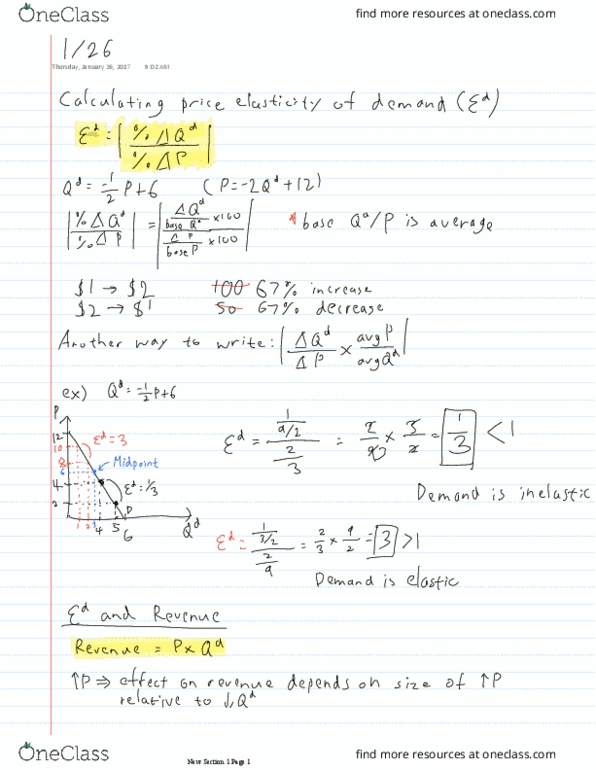 OneClass find more resources at oneclass.com
1/26
Thursday, January 26, 2017 9:02 AM
Calculating price elasticity of demand (Ɛᵈ)
Ɛᵈ = | %ΔQᵈ / %ΔP |
Qᵈ = -1/2 P+6 (P=-2Qᵈ+12)
| %ΔQᵈ / %ΔP | = | (ΔQᵈ / base Qᵈ ×100) / (ΔP / base P ×100) | * base Qᵈ/P is average
$1 → $2 100 67% increase
$2 → $1 50 67% decrease
Another way to write: | ΔQᵈ / ΔP × avg P / avg Qᵈ |
ex) Qᵈ = -1/2 P+6
P
12
10
8
6
4
2
Ɛᵈ = 3
Midpoint
Ɛᵈ = 1/3
D
1 2 3 4 5 6 Qᵈ
Ɛᵈ = (1 / (9/2)) / (2/3) = 2/9 × 3/2 = 1/3 < 1
Demand is inelastic
Ɛᵈ = (1 / (3/2)) / (2/9) = 2/3 × 9/2 = 3 > 1
Demand is elastic
Ɛᵈ and Revenue
Revenue = P×Qᵈ
↑P ⇒ effect on revenue depends on size of ↑P
relative to ↓Qᵈ
New Section 1 Page 1
OneClass find more resources at oneclass.com